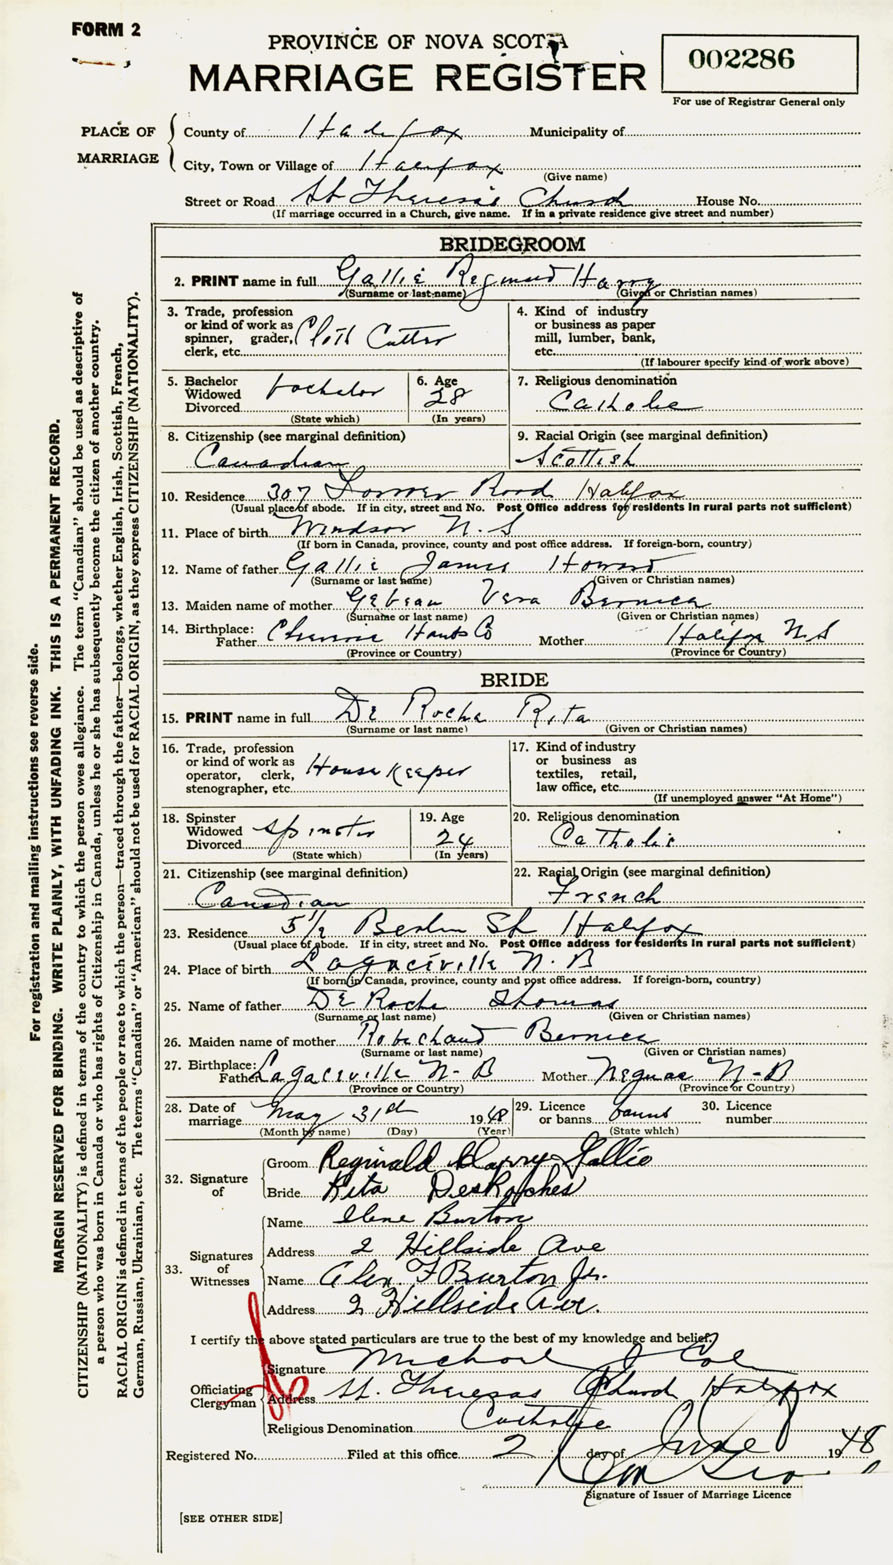 FORM 2
PROVINCE OF NOVA SCOTIA
MARRIAGE REGISTER
002286
For use of Registrar General only
PLACE OF MARRIAGE
County of Halifax Municipality of
City, Town or Village of Halifax
(Give name)
Street or Road St Theresa's Church House No.
(If marriage occurred in a Church, give name. If in a private residence give street and number)
For registration and mailing instructions see reverse side.
MARGIN RESERVED FOR BINDING. WRITE PLAINLY, WITH UNFADING INK. THIS IS A PERMANENT RECORD.
CITIZENSHIP (NATIONALITY) is defined in terms of the country to which the person owes allegiance. The term "Canadian" should be used as descriptive of
a person who was born in Canada or who has rights of Citizenship in Canada, unless he or she has subsequently become the citizen of another country.
RACIAL ORIGIN is defined in terms of the people or race to which the person—traced through the father—belongs, whether English, Irish, Scottish, French,
German, Russian, Ukrainian, etc. The terms "Canadian" or "American" should not be used for RACIAL ORIGIN, as they express CITIZENSHIP (NATIONALITY).
BRIDEGROOM
2. PRINT name in full Gallie Reginald Harry
(Surname or last name) (Given or Christian names)
3. Trade, profession or kind of work as spinner, grader, clerk, etc. Cloth Cutter
4. Kind of industry or business as paper mill, lumber, bank, etc.
(If labourer specify kind of work above)
5. Bachelor Widowed Divorced bachelor
(State which)
6. Age 28
(In years)
7. Religious denomination
Catholic
8. Citizenship (see marginal definition)
Canadian
9. Racial Origin (see marginal definition)
Scottish
10. Residence 307 Road Halifax
(Usual place of abode. If in city, street and No. Post Office address for residents in rural parts not sufficient)
11. Place of birth Windsor N.S
(If born in Canada, province, county and post office address. If foreign-born, country)
12. Name of father Gallie James Howard
(Surname or last name) (Given or Christian names)
13. Maiden name of mother Vera Bernica
(Surname or last name) (Given or Christian names)
14. Birthplace: Father Hants Co Mother Halifax N.S
(Province or Country) (Province or Country)
BRIDE
15. PRINT name in full De Roche Rita
(Surname or last name) (Given or Christian names)
16. Trade, profession or kind of work as operator, clerk, stenographer, etc. House Keeper
17. Kind of industry or business as textiles, retail, law office, etc.
(If unemployed answer "At Home")
18. Spinster Widowed Divorced spinster
(State which)
19. Age 24
(In years)
20. Religious denomination
Catholic
21. Citizenship (see marginal definition)
Canadian
22. Racial Origin (see marginal definition)
French
23. Residence 5 1/2 Berlin St Halifax
(Usual place of abode. If in city, street and No. Post Office address for residents in rural parts not sufficient)
24. Place of birth Lagaceville N.B
(If born in Canada, province, county and post office address. If foreign-born, country)
25. Name of father De Roche Thomas
(Surname or last name) (Given or Christian names)
26. Maiden name of mother Robechaud Bernica
(Surname or last name) (Given or Christian names)
27. Birthplace: Father Lagaceville N-B Mother Neguac N-B
(Province or Country) (Province or Country)
28. Date of marriage May 31st 1948
(Month by name) (Day) (Year)
29. Licence or banns banns
(State which)
30. Licence number
32. Signature of
Groom Reginald Harry Gallie
Bride Rita DesRoches
33. Signatures of Witnesses
Name Ilene Burton
Address 2 Hillside Ave
Name Alex. F Burton Jr.
Address 2 Hillside Ave.
I certify the above stated particulars are true to the best of my knowledge and belief.
Officiating Clergyman
Signature Michael J Cole
Address St. Theresas Church Halifax
Religious Denomination Catholic
Registered No. Filed at this office 2 day of June 1948
Signature of Issuer of Marriage Licence
[SEE OTHER SIDE]